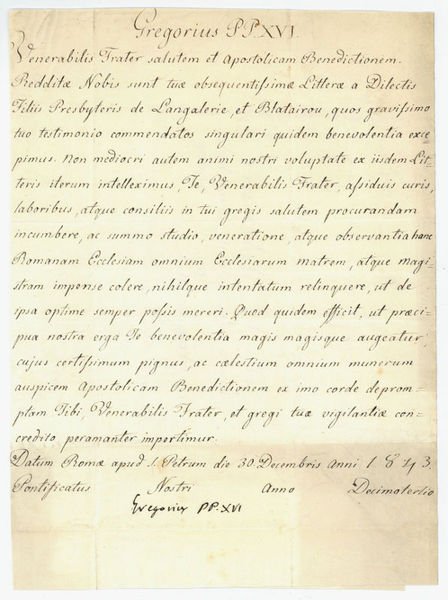 Gregorius PP. XVI.
Venerabilis Frater salutem et Apostolicam Benedictionem.
Redditæ Nobis sunt tuæ obsequentissimæ Litteræ a Dilectis
Filiis Presbyteris de Langalerie, et Blatairou, quos gravissimo
tuo testimonio commendatos singulari quidem benevolentia exce
pimus. Non mediocri autem animi nostri voluptate ex iisdem Lit
teris iterum intelleximus, Te, Venerabilis Frater, assiduis curis,
laboribus, atque consiliis in tui gregis salutem procurandam
incumbere, ac summo studio, veneratione, atque observantia hanc
Romanam Ecclesiam omnium Ecclesiarum matrem, atque magi
stram impense colere, nihilque intentatum relinquere, ut de
ipsa optime semper possis mereri. Quod quidem efficit, ut præci
pua nostra erga Te benevolentia magis magisque augeatur,
cujus certissimum pignus, ac cælestium omnium munerum
auspicem Apostolicam Benedictionem ex imo corde deprom
ptam Tibi, Venerabilis Frater, et gregi tuæ vigilantiæ con
credito peramanter impertimur.
Datum Romæ apud S. Petrum die 30. Decembris Anni 1843.
Pontificatus Nostri Anno Decimotertio
Gregorius PP. XVI